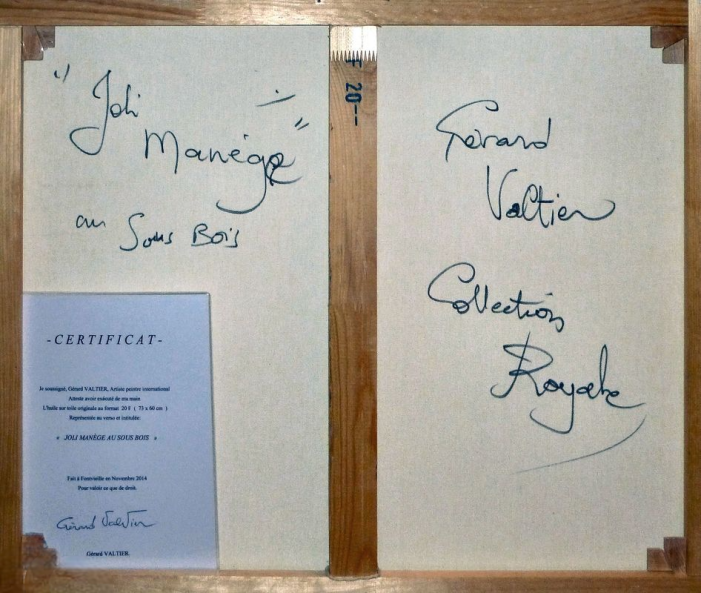 "Joli
Manège"
au Sous Bois
F 20--
Gérard
Valtier
Collection
Royale
-CERTIFICAT-
Je soussigné, Gérard VALTIER, Artiste peintre international
Atteste avoir exécuté de ma main
L'huile sur toile originale au format 20 F ( 73 x 60 cm )
Représentée au verso et intitulée:
« JOLI MANÈGE AU SOUS BOIS »
Fait à Fonteville en Novembre 2014
Pour valoir ce que de droit.
Gérard Valtier
Gérard VALTIER.